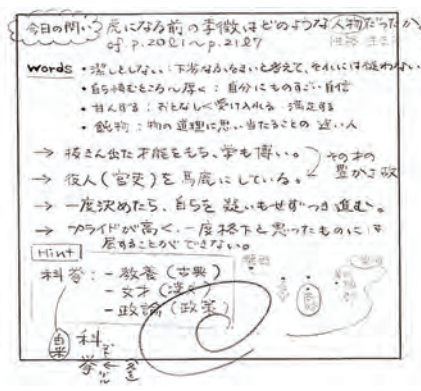 今日の問い 虎になる前の李徴はどのような人物だったか。
cf. p.20ℓ1~p.21ℓ7
性格 生き
Words ・潔しとしない:下劣なふるまいと考えて、それには従わない
・自ら恃むところ~厚く:自分にものすごい自信
・甘んずる:おとなしく受け入れる 満足する
・鈍物:物の道理に思い当たることの遅い人
→ 抜きん出た才能をもち、学も博い。
その才の豊かさ故
→ 役人(官吏)を馬鹿にしている。
→ 一度決めたら、自らを疑いもせずつき進む。
→ プライドが高く、一度格下と思ったものには
屈することができない。
Hint
科挙:-教養(古典)
-文才(漢文)
-政論(政策)
科
挙